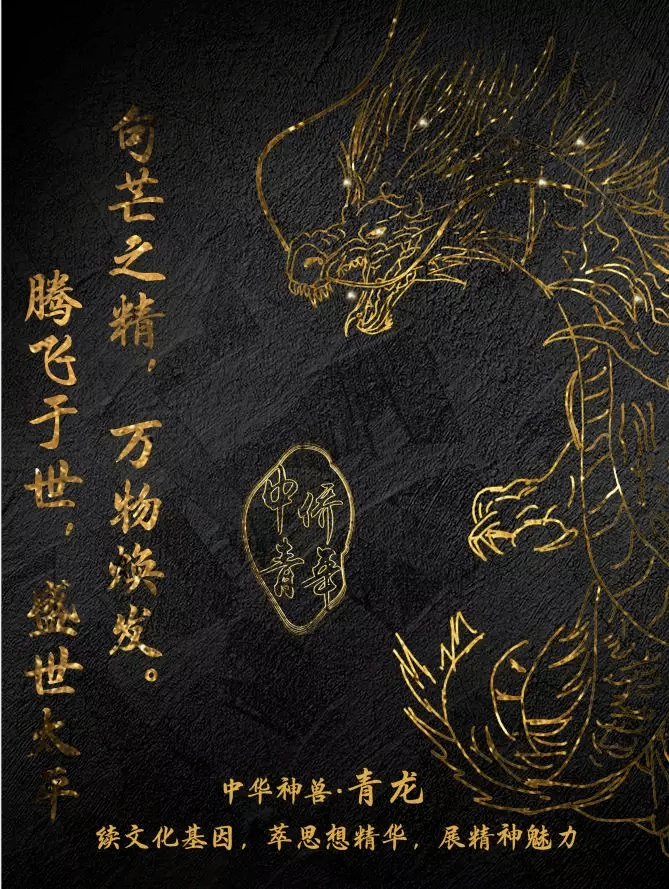 句芒之精，万物焕发。
腾飞于世，盛世太平
中侨
青年
中华神兽·青龙
续文化基因，萃思想精华，展精神魅力